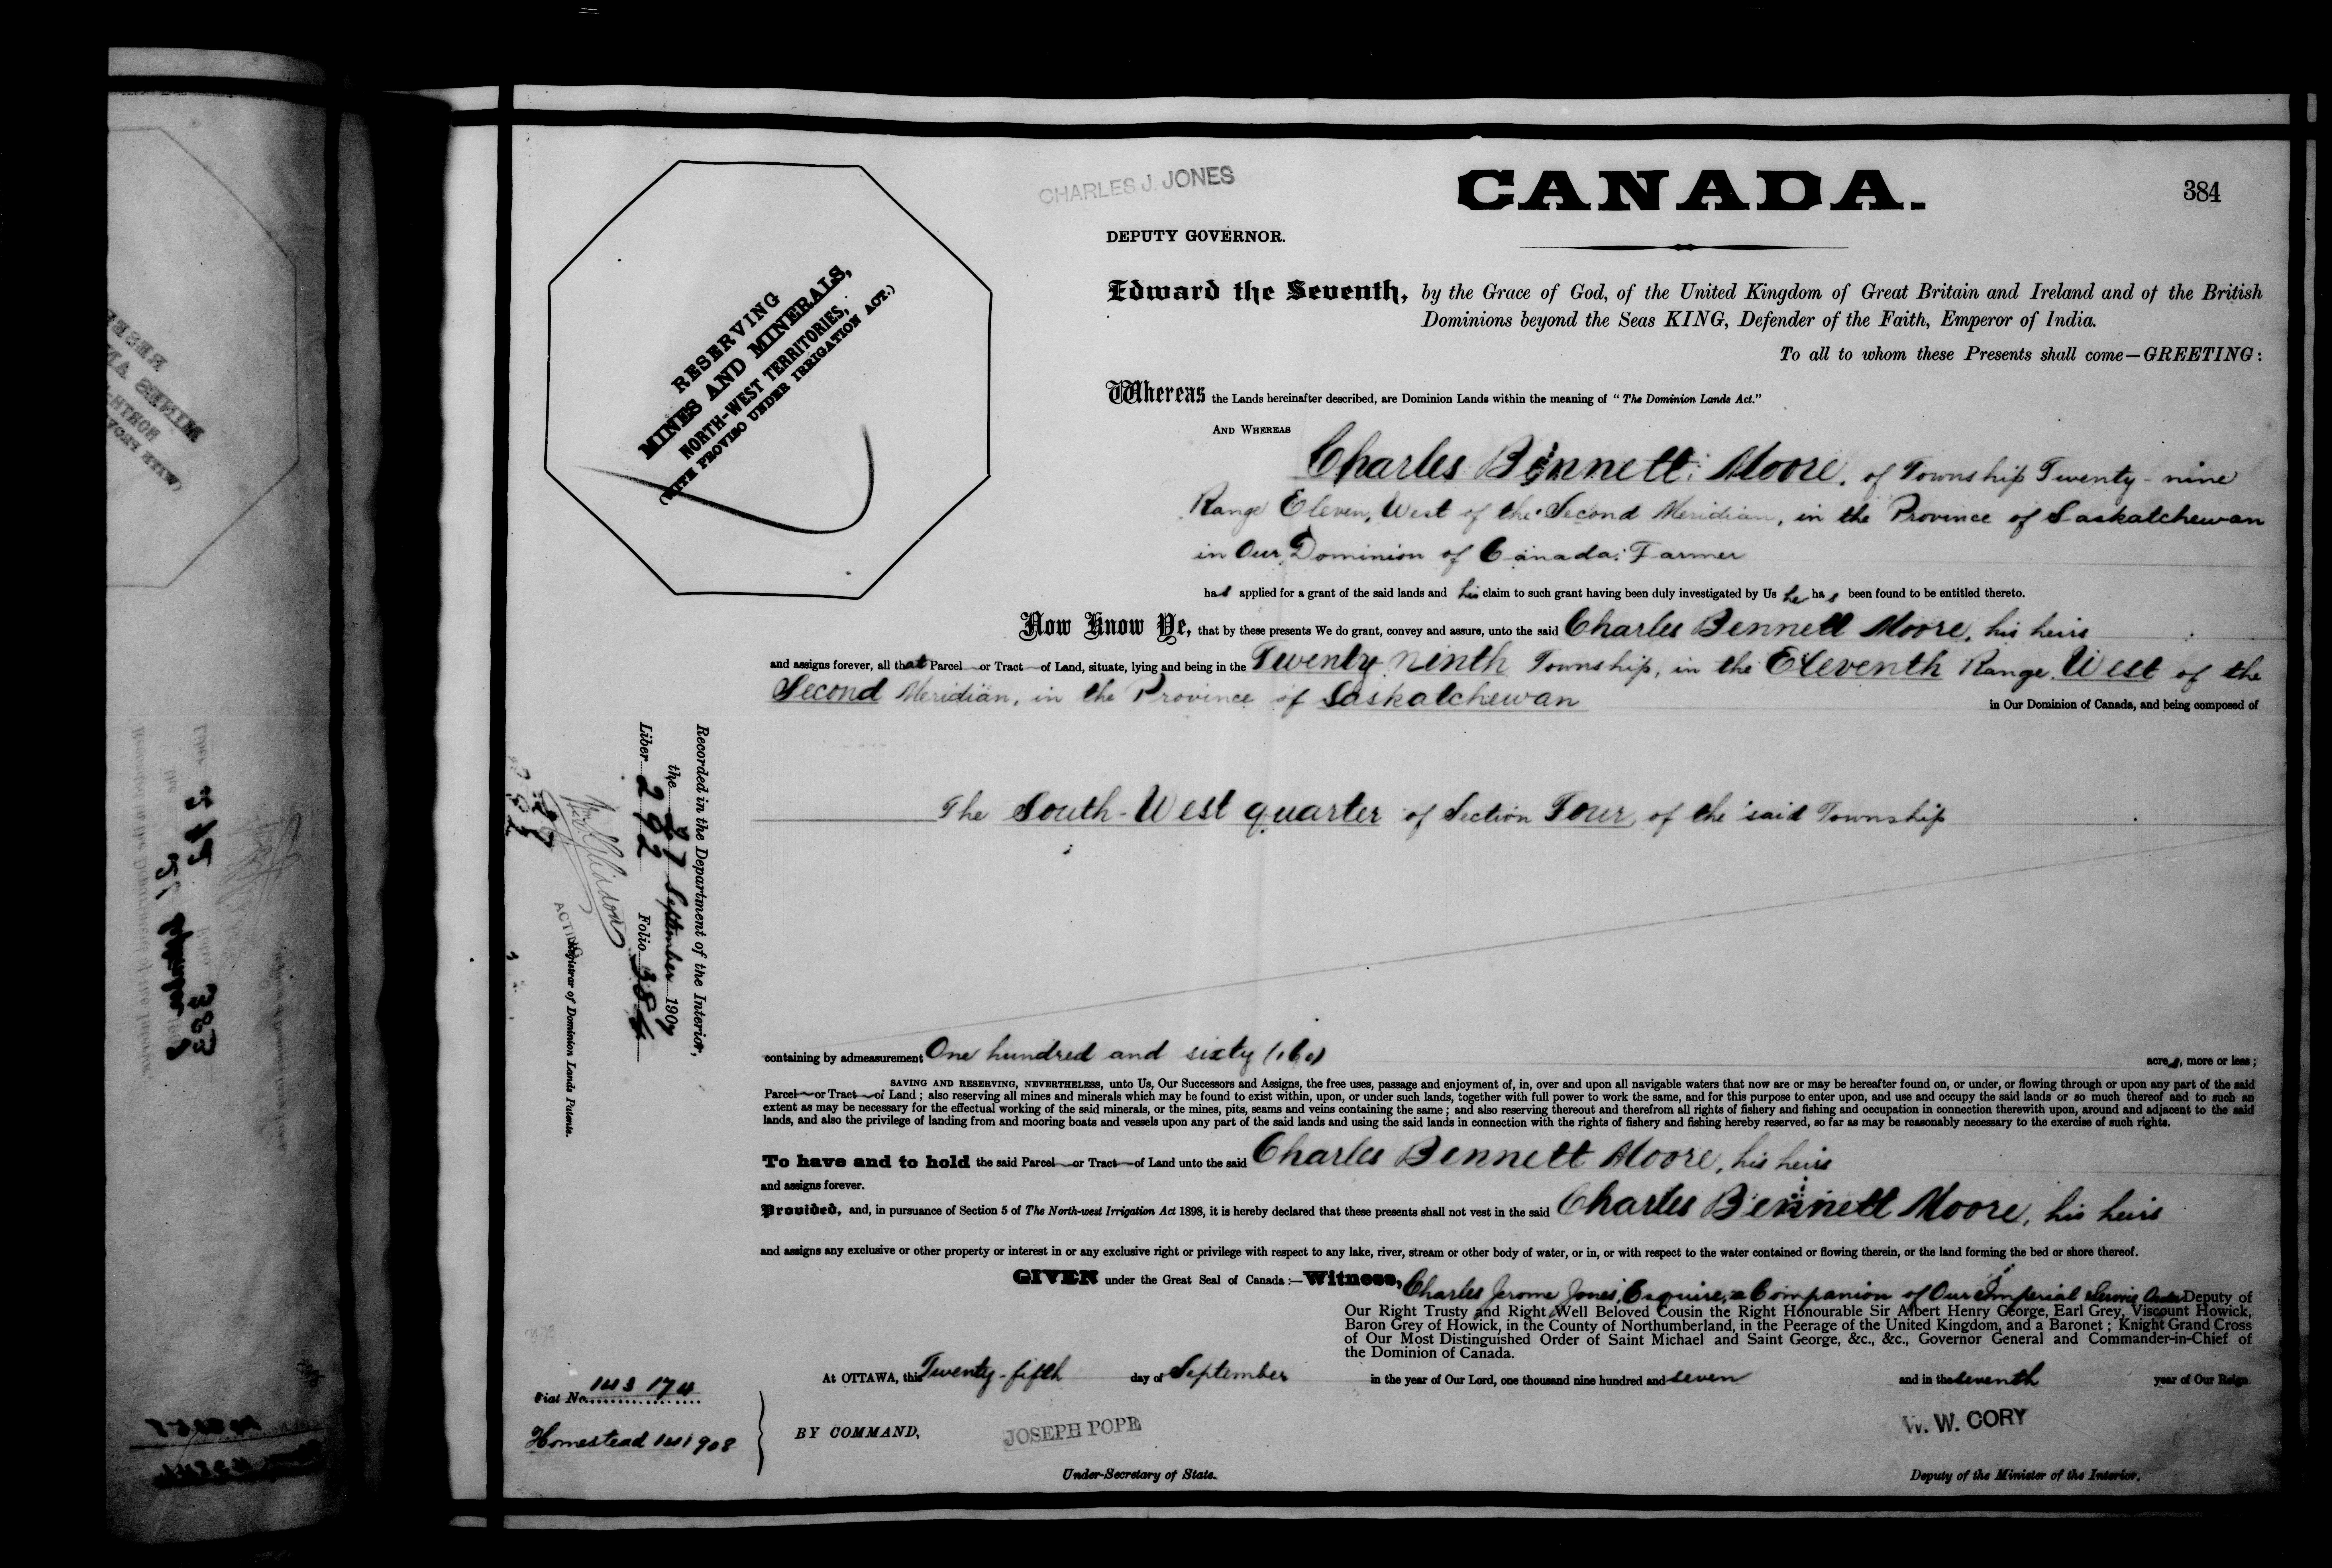 CHARLES J. JONES
CANADA.
384
DEPUTY GOVERNOR.
RESERVING
MINES AND MINERALS,
NORTH-WEST TERRITORIES,
(WITH PROVISO UNDER IRRIGATION ACT.)
Edward the Seventh, by the Grace of God, of the United Kingdom of Great Britain and Ireland and of the British
Dominions beyond the Seas KING, Defender of the Faith, Emperor of India.
To all to whom these Presents shall come—GREETING:
Whereas the Lands hereinafter described, are Dominion Lands within the meaning of "The Dominion Lands Act."
AND WHEREAS
Charles Bennett Moore, of Township Twenty-nine
Range Eleven, West of the Second Meridian, in the Province of Saskatchewan
in Our Dominion of Canada: Farmer
has applied for a grant of the said lands and his claim to such grant having been duly investigated by Us he has been found to be entitled thereto.
Now Know Ye, that by these presents We do grant, convey and assure, unto the said Charles Bennett Moore, his heirs
and assigns forever, all that Parcel or Tract of Land, situate, lying and being in the Twenty ninth Township, in the Eleventh Range West of the
Second Meridian, in the Province of Saskatchewan
in Our Dominion of Canada, and being composed of
The South-West quarter of Section Four, of the said Township
Recorded in the Department of the Interior,
the 27 September 1907
Liber 292 Folio 384
ACTING Registrar of Dominion Lands Patents.
containing by admeasurement One hundred and sixty (160) acres, more or less;
SAVING AND RESERVING, NEVERTHELESS, unto Us, Our Successors and Assigns, the free uses, passage and enjoyment of, in, over and upon all navigable waters that now are or may be hereafter found on, or under, or flowing through or upon any part of the said
Parcel or Tract of Land; also reserving all mines and minerals which may be found to exist within, upon, or under such lands, together with full power to work the same, and for this purpose to enter upon, and use and occupy the said lands or so much thereof and to such an
extent as may be necessary for the effectual working of the said minerals, or the mines, pits, seams and veins containing the same; and also reserving thereout and therefrom all rights of fishery and fishing and occupation in connection therewith upon, around and adjacent to the said
lands, and also the privilege of landing from and mooring boats and vessels upon any part of the said lands and using the said lands in connection with the rights of fishery and fishing hereby reserved, so far as may be reasonably necessary to the exercise of such rights.
To have and to hold the said Parcel or Tract of Land unto the said Charles Bennett Moore, his heirs
and assigns forever.
Provided, and, in pursuance of Section 5 of The North-west Irrigation Act 1898, it is hereby declared that these presents shall not vest in the said Charles Bennett Moore, his heirs
and assigns any exclusive or other property or interest in or any exclusive right or privilege with respect to any lake, river, stream or other body of water, or in, or with respect to the water contained or flowing therein, or the land forming the bed or shore thereof.
GIVEN under the Great Seal of Canada:—Witness, Charles Jerome Jones, Esquire, a Companion of Our Imperial Service Order Deputy of
Our Right Trusty and Right Well Beloved Cousin the Right Honourable Sir Albert Henry George, Earl Grey, Viscount Howick,
Baron Grey of Howick, in the County of Northumberland, in the Peerage of the United Kingdom, and a Baronet; Knight Grand Cross
of Our Most Distinguished Order of Saint Michael and Saint George, &c., &c., Governor General and Commander-in-Chief of
the Dominion of Canada.
At OTTAWA, this Twenty-fifth day of September in the year of Our Lord, one thousand nine hundred and seven and in the seventh year of Our Reign
Fiat No. 143174
Homestead 141908
BY COMMAND,
JOSEPH POPE
Under-Secretary of State.
W. W. CORY
Deputy of the Minister of the Interior.